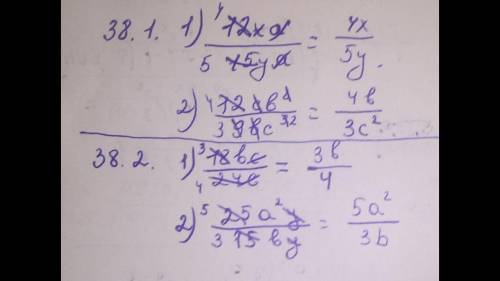 38.1. 1) 4 12xa / 5 15ya = 4x / 5y.
2) 4 12ab² / 3 9abc³ ² = 4b / 3c²
38.2. 1) 3 18bc / 4 24c = 3b / 4
2) 5 25a²y / 3 15by = 5a² / 3b